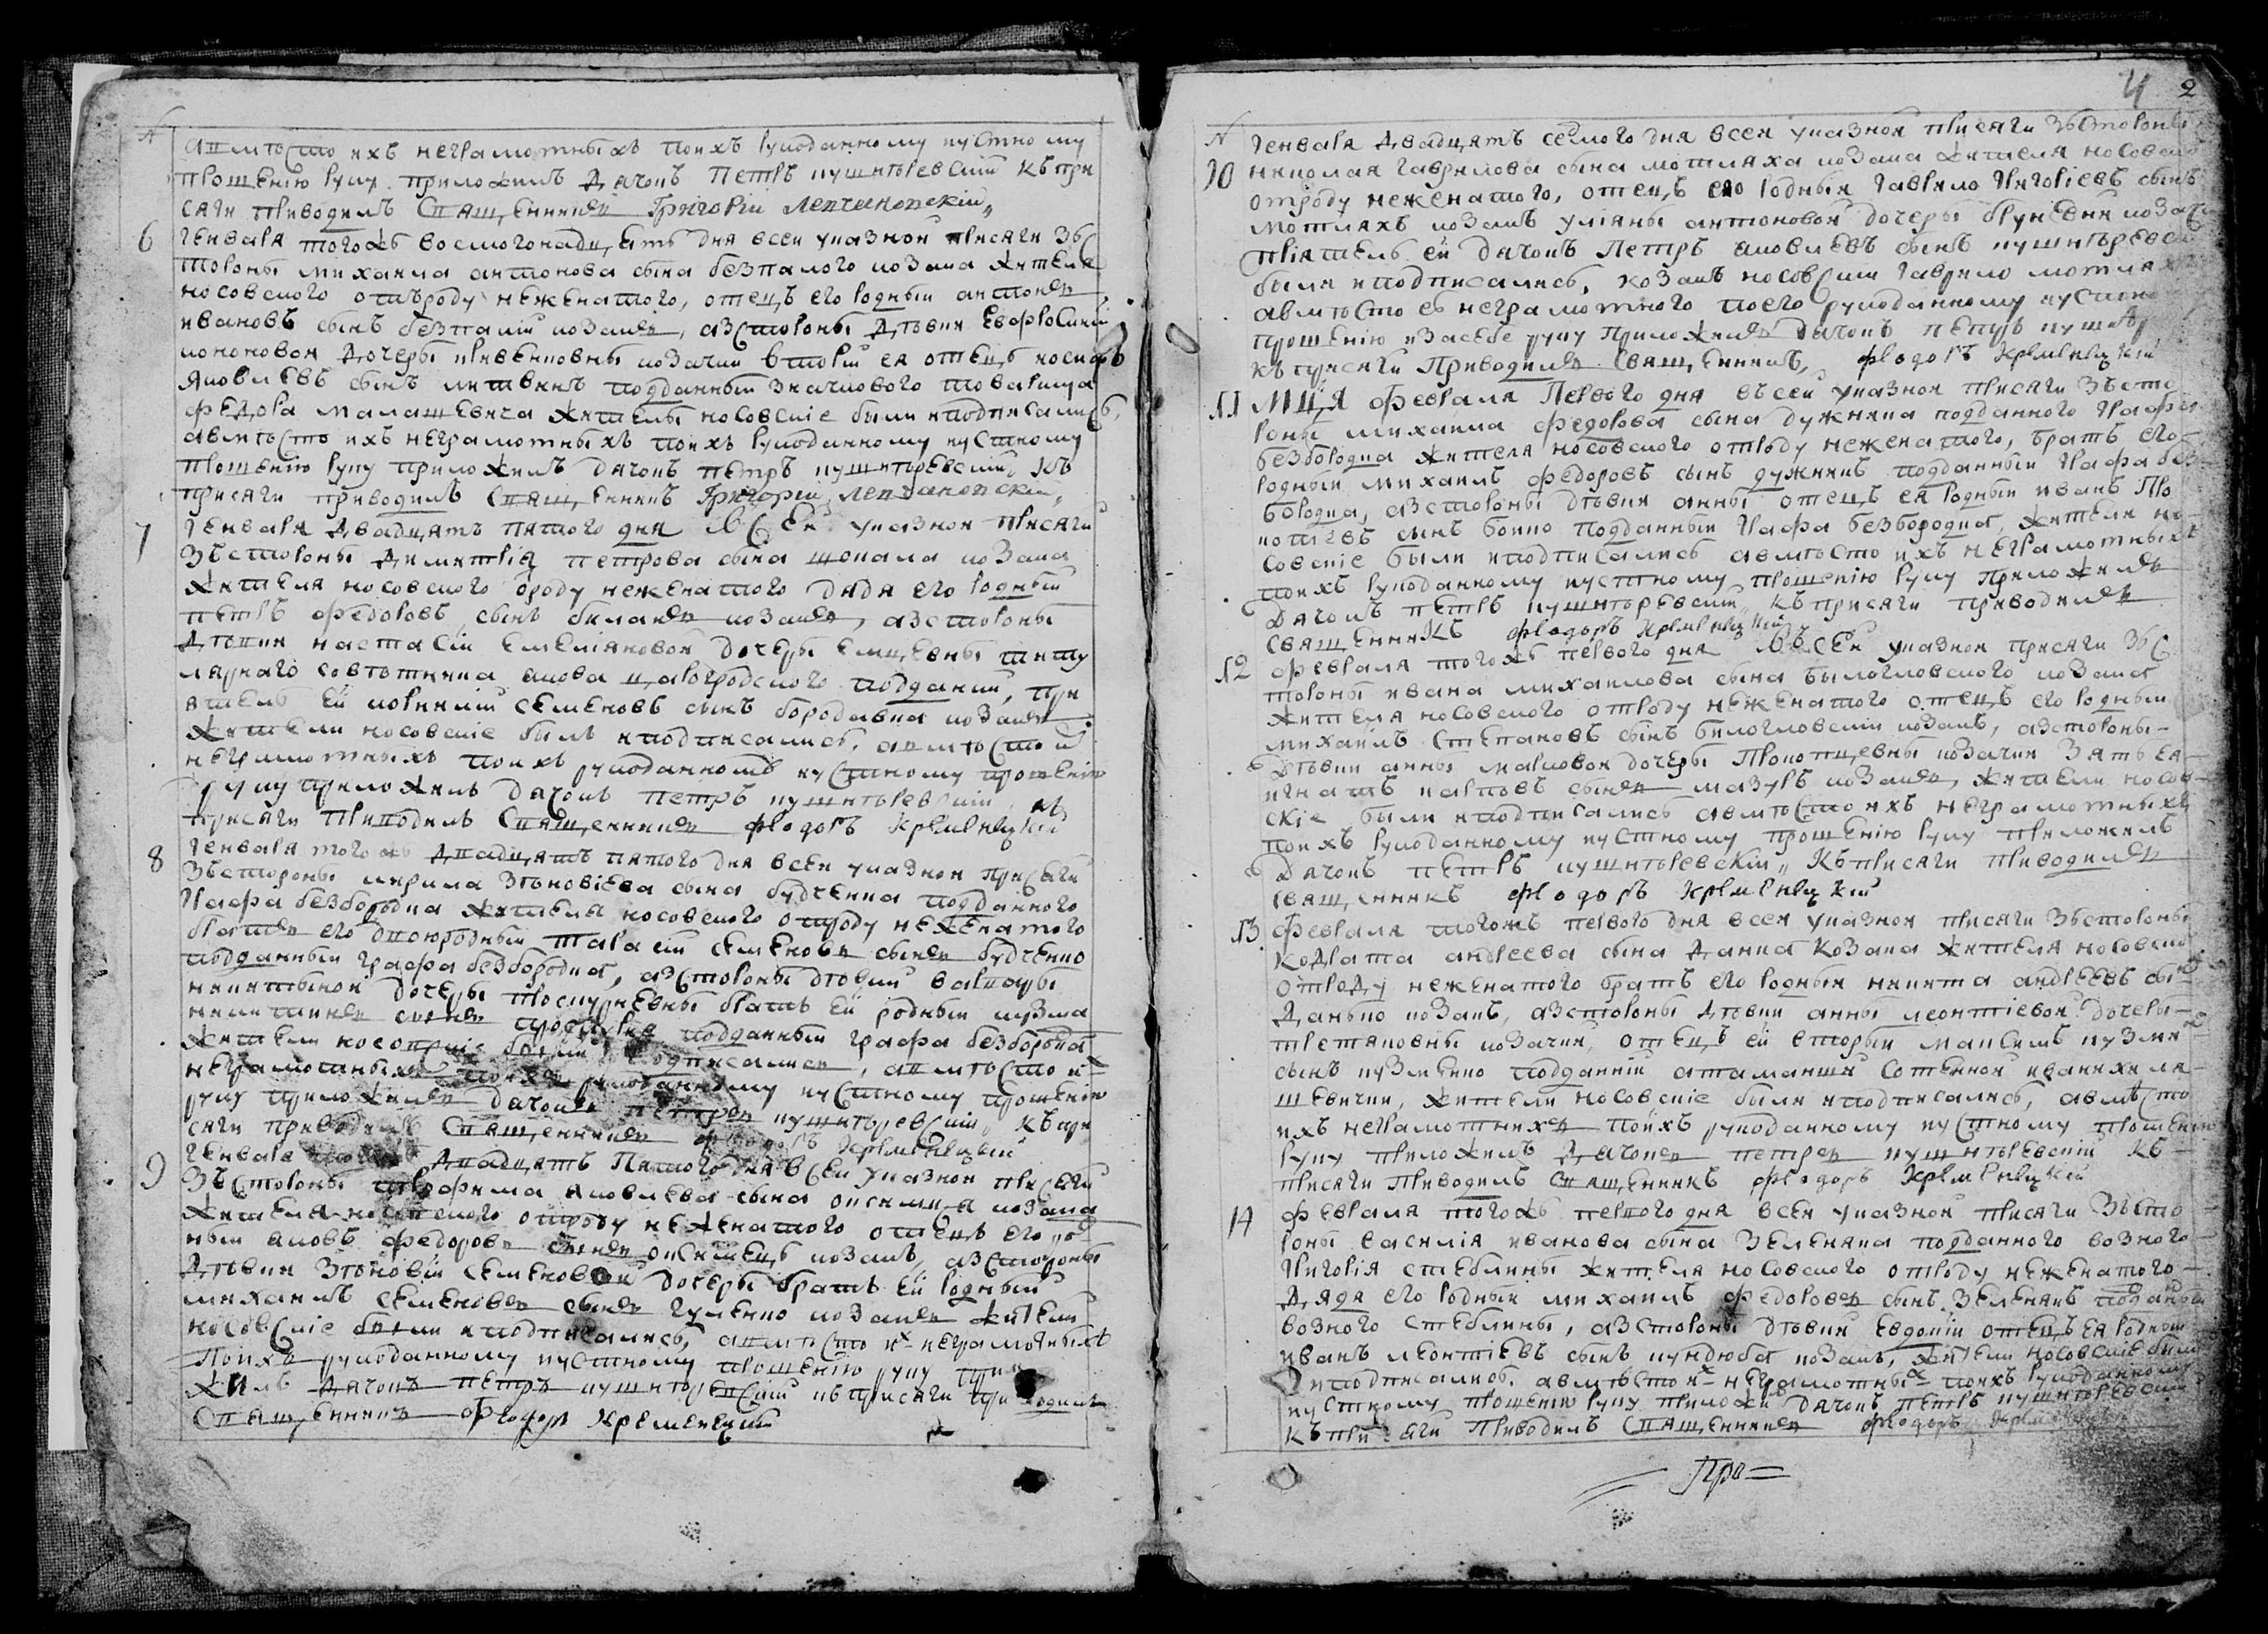 N
авмѣсто ихъ неграмотныхъ поихъ рукоданному иустному
прошенію руку приложилъ Дячокъ Петръ пушнѣревскій къ при
сяги приводилъ Священникъ Григорій
6 Генваря тогожъ восмогонадцять дня всей указной присяги зъс
тороны михаила антонова сына безпалого козака жителя
носовского отъроду неженатого, отецъ его родный антонъ
ивановъ сынъ безпалій козакъ, азстороны Дѣвки Евфросиніи
кононовой Дочеры козачки вторій ея отецъ иосифъ
Яковлевъ сынъ литвинъ подданный значкового товарища
Федора малашевича жителы носовскіе были иподписались,
авмѣсто ихъ неграмотныхъ поихъ рукоданному иустному
прошенію руку приложилъ дячокъ петръ пушнѣревскій, къ
присяги приводилъ Священникъ Григорій
7 Генваря Двадцятъ пятого дня Всей указной присяги
Зъстороны Димитрія петрова сына щокала козака
Жителя носовского ороду неженатого Дядя его родный
петръ федоровъ сынъ козакъ, азстороны
Дѣвки настасіи Емелiяновой Дочеры титу
лярнаго совѣтника якова подданій, при
ятель ей корнилій семеновъ сынъ бородавка козакъ
жители носовскіе былъ иподписались, авмѣсто и
неграмотныхъ поихъ рукоданномѣ иустному прошенію
руку приложилъ Дячокъ петръ пушнѣревскій къ
присяги приводилъ Священникъ Феодоръ Кременецкій
8 Генваря тогожъ Двадцять пятого дня всей указной присяги
Зъстороны кирила зѣновіева сына будченка подданного
Графа безбородка жителя носовского отроду неженатого
братъ его двоюродный тарасій семеновъ сынъ будченко
подданный графа безбородка, азстороны дѣвки варвары
никитыной дочеры проскурневны братъ ей родный кузма
никитинъ сынъ проскурня подданный графа безбородка
Жители носовскіе были иподписались, авмѣсто их
неграмотныхъ поихъ рукоданному иустному прошенію
руку приложилъ Дячокъ петръ пушнѣревскій, къ при
сяги приводилъ Священникъ Феодоръ Кременецкій
9 Генваря тогожъ Двадцять Пятого дня всей указной присяги
Зъстороны трофима яковлева сына козака
Жителя носовского отроду неженатого отецъ его род
ный яковъ федоровъ сынъ козакъ, азстороны
Дѣвки Зѣновіи семеновой дочеры братъ ей родный
михаилъ семеновъ сынъ гуленко козакъ жители
носовскіе были иподписались, авмѣсто их неграмотныхъ
Поихъ рукоданному иустному прошенію руку прило
жилъ Дячокъ петръ пушнѣревскій къприсяги приводилъ
Священникъ Феодоръ Кременецкій
4 2
N
Генваря Двадцять семого дня всей указной присяги Зъстороны
10 николая гаврилова сына мотляха козака жителя носовского
отроду неженатого, отецъ его родный гаврило Григоріевъ сынъ
мотляхъ козакъ уліяны антоновой дочеры козачки
пріятель ей дячокъ Петръ яковлевъ сынъ пушнѣревскій
были иподписались, козакъ носовскій гаврило мотляхъ
авмѣсто его неграмотного поего рукоданному иустному
прошенію изасебе руку Приложилъ Дячокъ петръ пушнѣр
къ присяги Приводилъ Священникъ, Феодоръ Кременецкій
11 Мця февраля Первого дня въсей указной присяги Зъсто
роны михаила федорова сына дужника подданного Графа
безбородка жителя носовского отроду неженатого, братъ его
родный михаилъ федоровъ сынъ дужникъ подданный Графа без
бородка, азстороны дѣвки анны отецъ ея родный иванъ Про
копіевъ сынъ бойко подданный Графа безбородка, жители но
совскіе были иподписались авмѣсто ихъ неграмотныхъ
поихъ рукоданному иустному прошенію руку приложилъ
Дячокъ петръ пушнѣревскій, къ присяги приводилъ
священникъ Феодоръ Кременецкій
12 февраля тогожъ первого дня Въсей указной присяги зъс
тороны ивана михаилова сына былогловского козака
жителя носовского отроду неженатого отецъ его родный
михаилъ Степановъ сынъ билогловскій козакъ, азстороны
дѣвки анны марковой дочеры Прокопцевны козачки зять ея
игнатъ карповъ сынъ мазуръ козакъ, жители носов
скіе были иподписались авмѣсто ихъ неграмотныхъ
поихъ рукоданному иустному прошенію руку приложилъ
Дячокъ петръ пушнѣревскій, Къприсяги приводилъ
священникъ Феодоръ Кременецкій
13 Февраля тогожъ первого дня всей указной присяги зъстороны
Кодрата андреева сына Данка Козака жителя носовско
отроду неженатого братъ его родный никита андреевъ сы
Данько козакъ, азстороны дѣвки анны леонтіевой дочеры
третяковны козачки, отецъ ей вторый максимъ кузми
сынъ кузменко подданній атаманши сотенной
жители носовскіе были иподписались, авмѣсто
ихъ неграмотнихъ поихъ рукоданному иустному прошенію
руку приложилъ Дячокъ петръ пушнѣревскій къ
присяги Приводилъ Священникъ Феодоръ Кременецкій
14 Февраля тогожъ первого дня всей указной присяги Зъсто
роны василія иванова сына Зеленяка подданного возного
Григорія стеблины жителя носовского отроду неженатого
Дядя его родный михаилъ федоровъ сынъ Зеленякъ подданый
возного стеблины, азстороны дѣвки Евдокіи отецъ ея родный
иванъ леонтіевъ сынъ кундюба козакъ, жители носовскіе были
иподписались, авмѣсто их неграмотных поихъ рукоданному
иустному прошенію руку приложи Дячокъ петръ пушнѣревскій
къприсяги Приводилъ Священникъ Феодоръ
Про